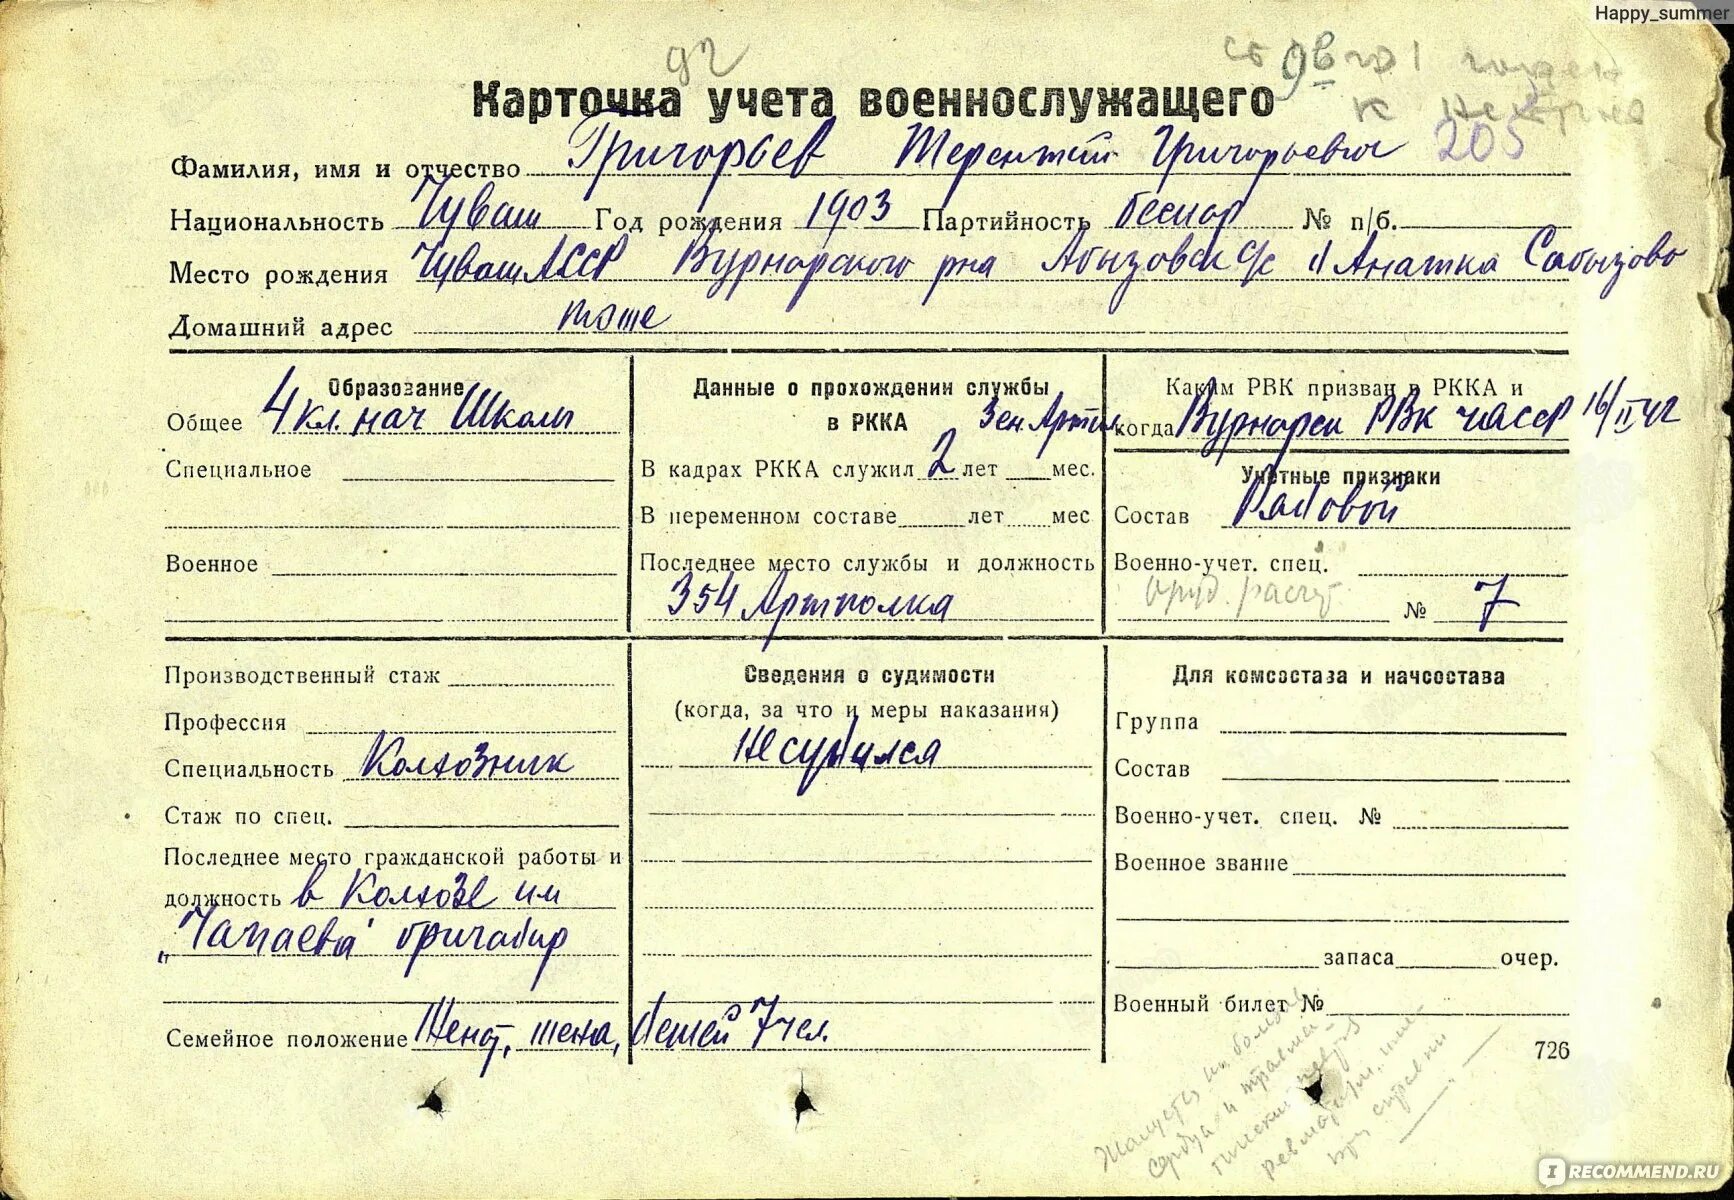 Happy_summer
Карточка учета военнослужащего
205
Фамилия, имя и отчество Григорьев Терентий Григорьевич
Национальность Чуваш Год рождения 1903 Партийность беспар № п/б.
Место рождения ЧувашАССР Вурнарского р-на Абызовск с/с Анаткa
Домашний адрес тоже
Образование
Общее 4 кл. нач Школы
Специальное
Военное
Данные о прохождении службы
в РККА Зен Артил
В кадрах РККА служил 2 лет мес.
В переменном составе лет мес
Последнее место службы и должность
354 Артполка
Каким РВК призван в РККА и
когда Вурнарск РВК ЧАССР 16/II 42
Учетные признаки
Состав Рядовой
Военно-учет. спец.
оруд. расчет
№ 7
Производственный стаж
Профессия
Специальность Колхозник
Стаж по спец.
Последнее место гражданской работы и
должность в Колхозе им
„Чапаева“ бригадир
Семейное положение Женат, жена, детей 7 чел.
Сведения о судимости
(когда, за что и меры наказания)
Не судился
Для комсостава и начсостава
Группа
Состав
Военно-учет. спец. №
Военное звание
запаса очер.
Военный билет №
726
Жалуется на боли
сердца и
RECOMMEND.RU